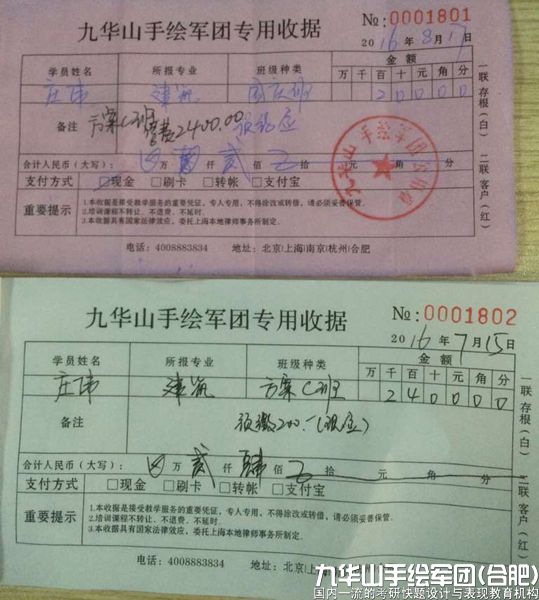 九华山手绘军团专用收据
№:0001801
2016年8月17日
学员姓名 所报专业 班级种类 金额
万 千 百 十 元 角 分
庄伟 建筑 2 0 0 0 0
备注 方案C班
学费2400.00
合计人民币（大写）： 万 仟 贰 佰 拾 元 角 分
支付方式 □现金 □刷卡 □转帐 □支付宝
重要提示
1.本收据是接受教学服务的重要凭证，专人专用，不得涂改或转借，请必须妥善保管。
2.培训课程不转让、不退费、不延时。
3.本收据具有国家法律效应，委托上海本地律师事务所制定。
电话：4008883834 地址：北京|上海|南京|杭州|合肥
一联存根（白） 二联客户（红）
九华山手绘军团
九华山手绘军团专用收据
№:0001802
2016年7月15日
学员姓名 所报专业 班级种类 金额
万 千 百 十 元 角 分
庄伟 建筑 方案C班 2 4 0 0 0 0
备注 预缴200.
合计人民币（大写）： 万 贰 仟 肆 佰 拾 元 角 分
支付方式 □现金 □刷卡 □转帐 □支付宝
重要提示
1.本收据是接受教学服务的重要凭证，专人专用，不得涂改或转借，请必须妥善保管。
2.培训课程不转让、不退费、不延时。
3.本收据具有国家法律效应，委托上海本地律师事务所制定。
电话：4008883834 地址：北京|上海
一联存根（白） 二联客户（红）
九华山手绘军团(合肥)
国内一流的考研快题设计与表现教育机构